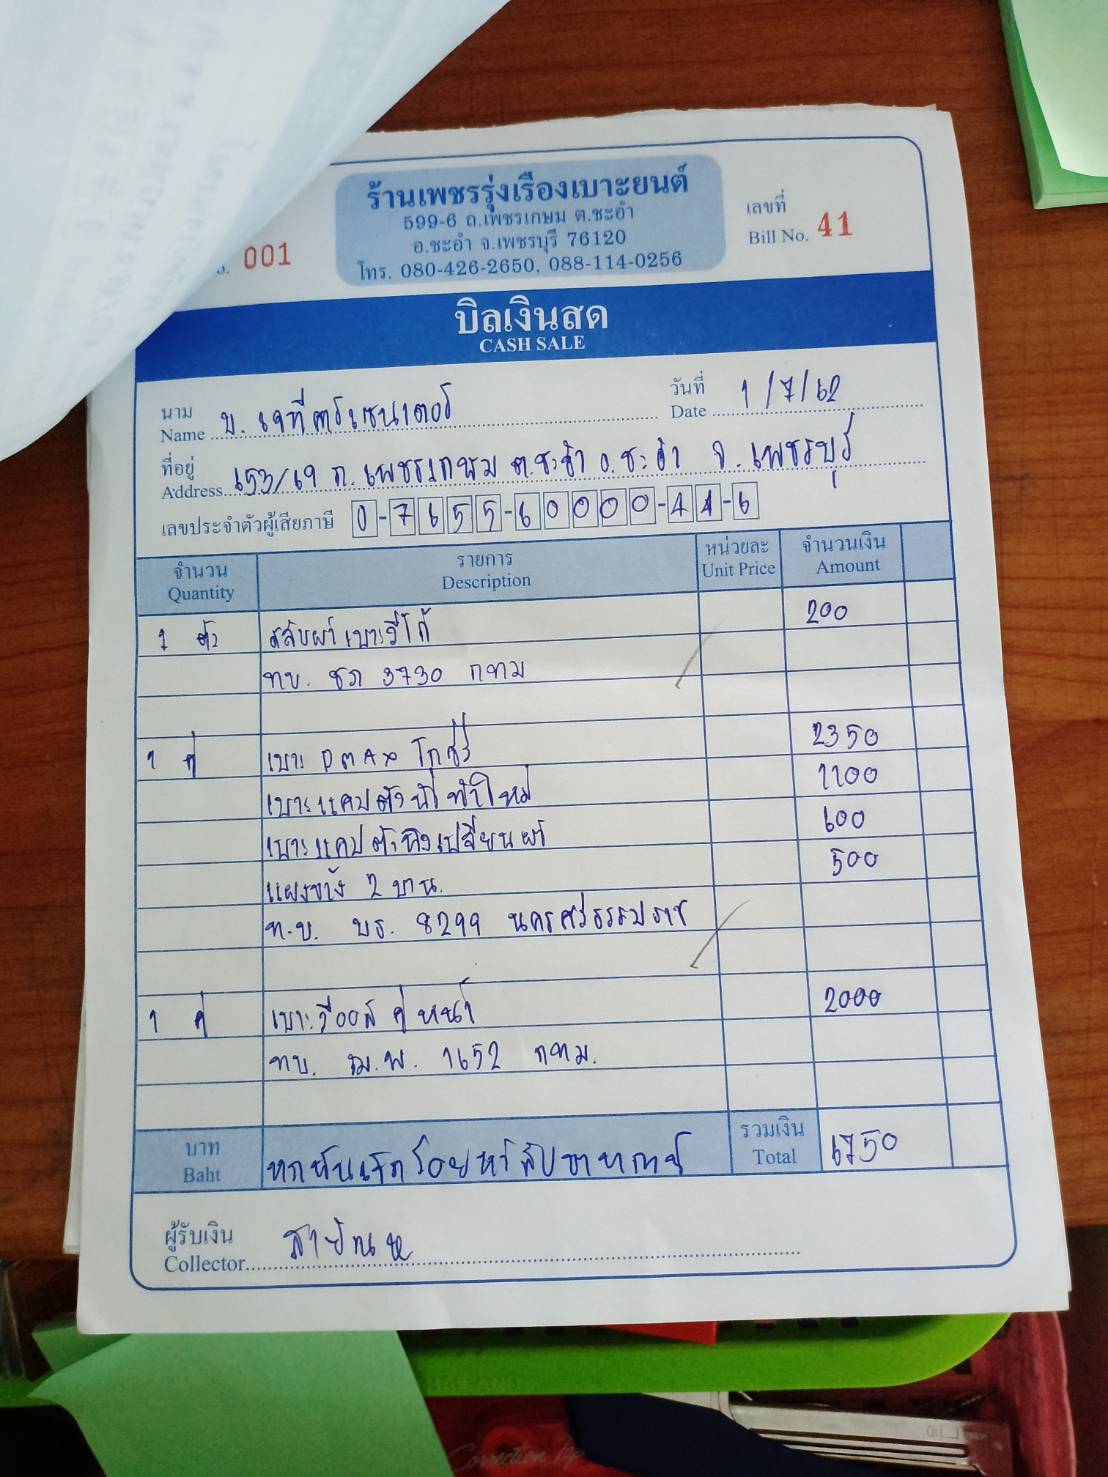 ร้านเพชรรุ่งเรืองเบาะยนต์
599-6 ถ.เพชรเกษม ต.ชะอำ
อ.ชะอำ จ.เพชรบุรี 76120
โทร. 080-426-2650, 088-114-0256
001
เลขที่
Bill No. 41
บิลเงินสด
CASH SALE
นาม
Name บ. เจทีคาร์เซนเตอร์
วันที่
Date 1/7/62
ที่อยู่
Address 653/69 ถ.เพชรเกษม ต.ชะอำ อ.ชะอำ จ.เพชรบุรี
เลขประจำตัวผู้เสียภาษี 0-7655-60000-44-6
จำนวน รายการ หน่วยละ จำนวนเงิน
Quantity Description Unit Price Amount
1 ตัว สลับผ้าเบาะวีโก้ 200
ทบ. ชภ 3730 กทม
1 คู่ เบาะ DMAX 2350
เบาะแคปตัวนั่งทำใหม่ 1100
เบาะแคปตัวพิงเปลี่ยนผ้า 600
แผงข้าง 2 บาน. 500
ท.บ. บธ. 8299 นครศรีธรรมราช
1 คู่ เบาะวีออส คู่หน้า 2000
ทบ. ฌ.พ. 1652 กทม.
บาท
Baht หกพันเจ็ดร้อยห้าสิบบาท
รวมเงิน
Total 6750
ผู้รับเงิน
Collector
Correction